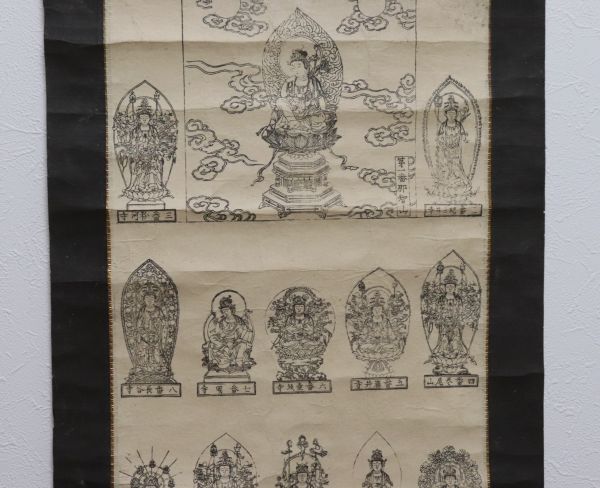 第一番那智山
二番紀三井寺
三番粉河寺
四番巻尾山
五番藤井寺
六番壷坂寺
七番岡寺
八番長谷寺